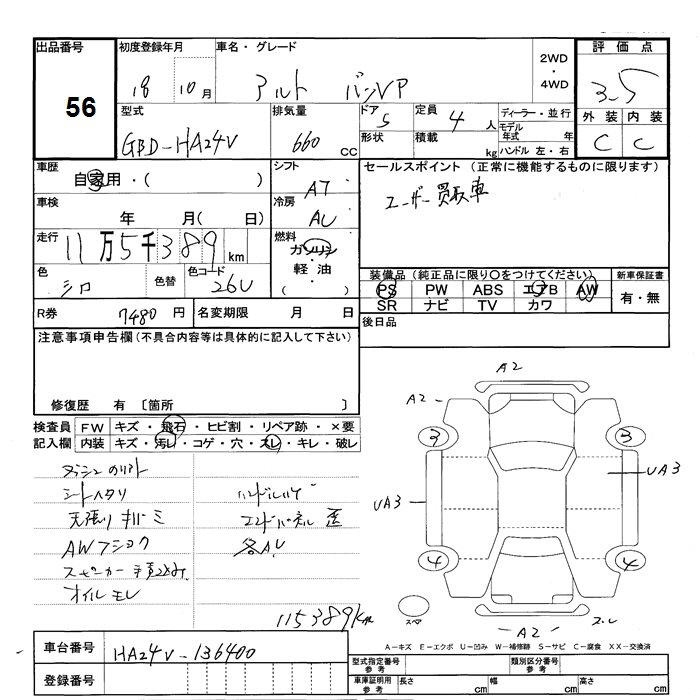 出品番号
56
初度登録年月
18 10月
車名・グレード
アルト バンVP
2WD
・
4WD
評価点
3.5
外装 内装
C C
型式
GBD-HA24V
排気量
660 CC
ドア
5
形状
定員
4 人
積載
kg
ディーラー・並行
モデル年式 年
ハンドル 左・右
車歴
自家用・( )
シフト
AT
セールスポイント(正常に機能するものに限ります)
ユーザー買取車
車検
年 月( 日)
冷房
AC
走行
11万5千389km
燃料
ガソリン
・
軽油
( )
色
シロ
色替
色コード
26U
装備品(純正品に限り〇をつけてください)
新車保証書
PS PW ABS エアB AW
有・無
SR ナビ TV カワ
R券
7480円
名変期限 月 日
後日品
注意事項申告欄(不具合内容等は具体的に記入して下さい)
修復歴 有 〔箇所 〕
検査員
記入欄
FW キズ・飛石・ヒビ割・リペア跡・×要
内装 キズ・汚レ・コゲ・穴・スレ・キレ・破レ
シートヘタリ
ハンドルハゲ
天張り
エンドパネル 歪
各AU
AWフショク
スピーカー
オイルモレ
115389km
A2
A2
3
3
UA3
UA3
4
4
スペア
A2
スレ
A-キズ E-エクボ U-凹み W-補修跡 S-サビ C-腐食 XX-交換済
車台番号
HA24V-136400
登録番号
型式指定番号
参考
類別区分番号
参考
車庫証明用
参考
長さ cm
幅 cm
高さ cm